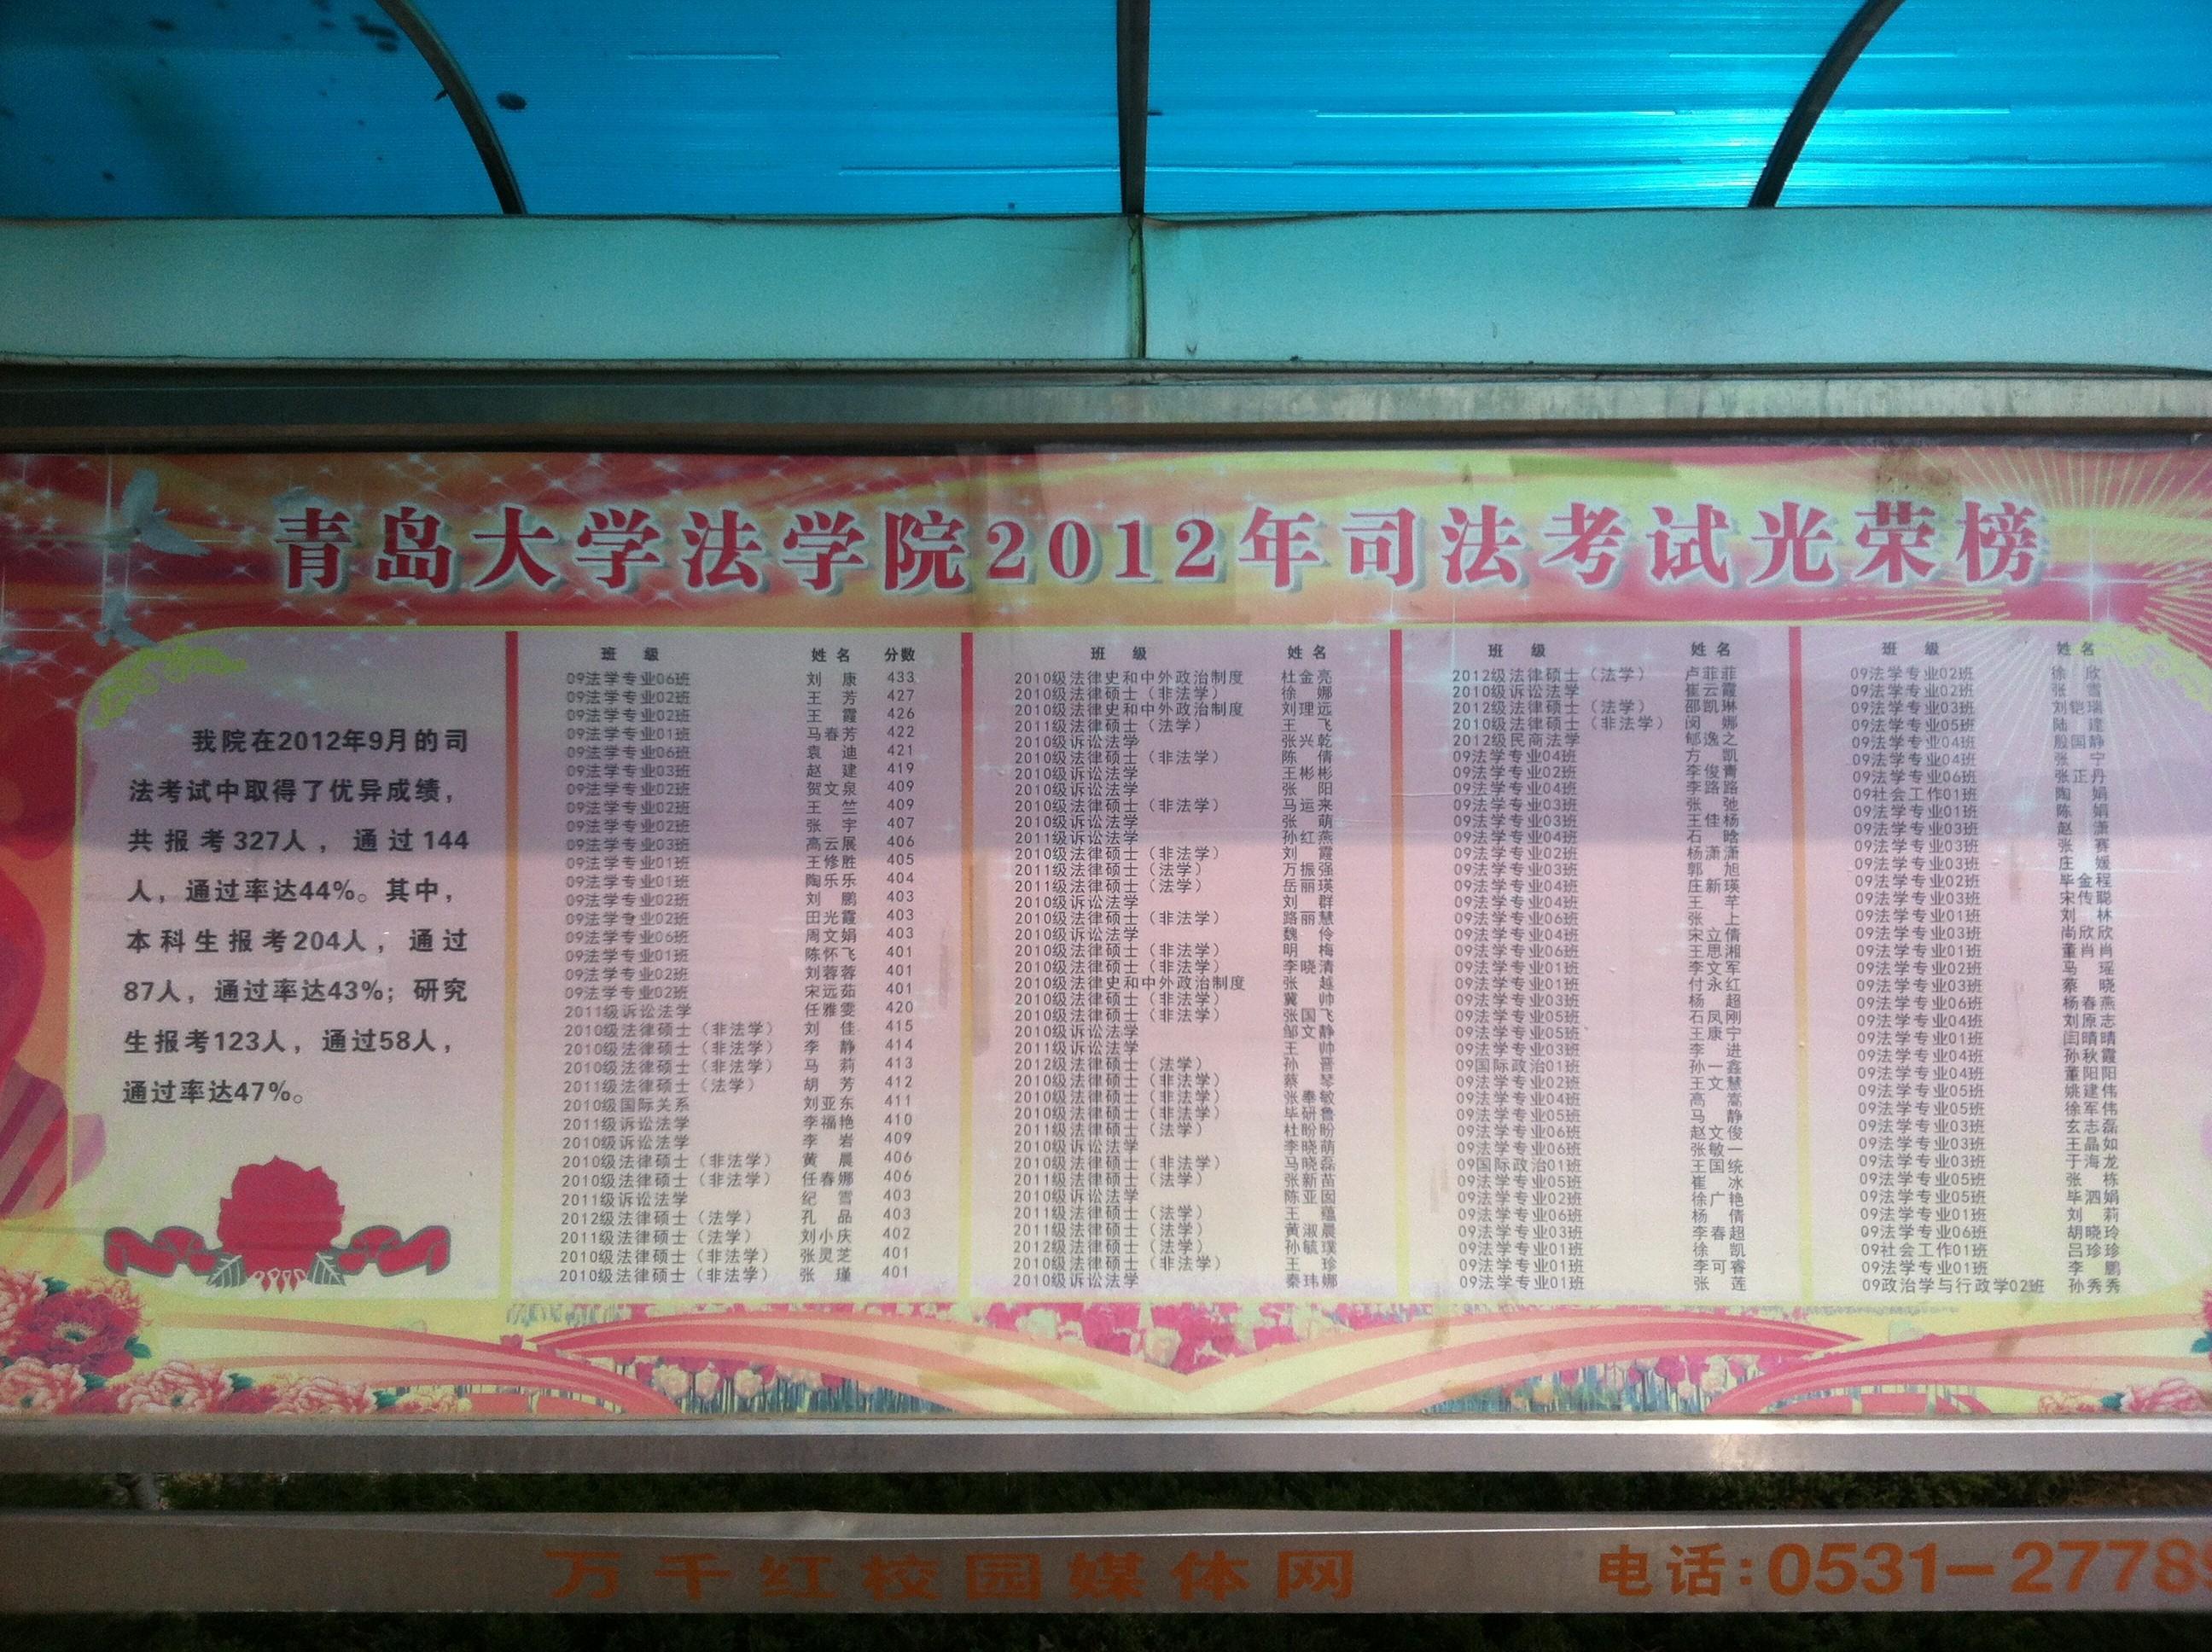 青岛大学法学院2012年司法考试光荣榜
我院在2012年9月的司
法考试中取得了优异成绩，
共报考327人，通过144
人，通过率达44%。其中，
本科生报考204人，通过
87人，通过率达43%；研究
生报考123人，通过58人，
通过率达47%。
班 级 姓 名 分数
09法学专业06班 刘 康 433
09法学专业02班 王 芳 427
09法学专业02班 王 霞 426
09法学专业01班 马春芳 422
09法学专业06班 袁 迪 421
09法学专业03班 赵 建 419
09法学专业02班 贺文泉 409
09法学专业02班 王 竺 409
09法学专业02班 张 宇 407
09法学专业03班 高云展 406
09法学专业01班 王修胜 405
09法学专业01班 陶乐乐 404
09法学专业02班 刘 鹏 403
09法学专业02班 田光霞 403
09法学专业06班 周文娟 403
09法学专业01班 陈怀飞 401
09法学专业02班 刘蓉蓉 401
09法学专业02班 宋远茹 401
2011级诉讼法学 任雅雯 420
2010级法律硕士（非法学） 刘 佳 415
2010级法律硕士（非法学） 李 静 414
2010级法律硕士（非法学） 马 莉 413
2011级法律硕士（法学） 胡 芳 412
2010级国际关系 刘亚东 411
2011级诉讼法学 李福艳 410
2010级诉讼法学 李 岩 409
2010级法律硕士（非法学） 黄 晨 406
2010级法律硕士（非法学） 任春娜 406
2011级诉讼法学 纪 雪 403
2012级法律硕士（法学） 孔 品 403
2011级法律硕士（法学） 刘小庆 402
2010级法律硕士（非法学） 张灵芝 401
2010级法律硕士（非法学） 张 瑾 401
班 级 姓 名
2010级法律史和中外政治制度 杜金亮
2010级法律硕士（非法学） 徐 娜
2010级法律史和中外政治制度 刘理远
2011级法律硕士（法学） 王 飞
2010级诉讼法学 张兴乾
2010级法律硕士（非法学） 陈 倩
2010级诉讼法学 王彬彬
2010级诉讼法学 张 阳
2010级法律硕士（非法学） 马运来
2010级诉讼法学 张 萌
2011级诉讼法学 孙红燕
2010级法律硕士（非法学） 刘 霞
2011级法律硕士（法学） 万振强
2011级法律硕士（法学） 岳丽瑛
2010级诉讼法学 刘 群
2010级法律硕士（非法学） 路丽慧
2010级诉讼法学 魏 伶
2010级法律硕士（非法学） 明 梅
2010级法律硕士（非法学） 李晓清
2010级法律史和中外政治制度 张 越
2010级法律硕士（非法学） 冀 帅
2010级法律硕士（非法学） 张国飞
2010级诉讼法学 邹文静
2011级诉讼法学 王 帅
2012级法律硕士（法学） 孙 晋
2010级法律硕士（非法学） 蔡 琴
2010级法律硕士（非法学） 张奉敏
2010级法律硕士（非法学） 毕研鲁
2011级法律硕士（法学） 杜盼盼
2010级诉讼法学 李晓萌
2010级法律硕士（非法学） 马晓磊
2011级法律硕士（法学） 张新苗
2010级诉讼法学 陈亚囡
2011级法律硕士（法学） 王 蕴
2011级法律硕士（法学） 黄淑晨
2012级法律硕士（法学） 孙毓璞
2010级法律硕士（非法学） 王 珍
2010级诉讼法学 秦玮娜
班 级 姓 名
2012级法律硕士（法学） 卢菲菲
2010级诉讼法学 崔云霞
2012级法律硕士（法学） 邵凯琳
2010级法律硕士（非法学） 闵 娜
2012级民商法学 郇逸之
09法学专业04班 方 凯
09法学专业02班 李俊青
09法学专业04班 李路路
09法学专业03班 张 弛
09法学专业03班 王佳杨
09法学专业04班 石 晗
09法学专业02班 杨潇潇
09法学专业03班 郭 旭
09法学专业04班 庄新瑛
09法学专业04班 王 芊
09法学专业06班 张 上
09法学专业04班 宋立倩
09法学专业06班 王思湘
09法学专业01班 李文军
09法学专业01班 付永红
09法学专业03班 杨 超
09法学专业05班 石凤刚
09法学专业05班 王康宁
09法学专业03班 李 进
09国际政治01班 孙一鑫
09法学专业02班 王文慧
09法学专业04班 高 嵩
09法学专业05班 马 静
09法学专业06班 赵文俊
09法学专业06班 张敏一
09国际政治01班 王国统
09法学专业05班 崔 冰
09法学专业02班 徐广艳
09法学专业06班 杨 倩
09法学专业03班 李春超
09法学专业01班 徐 凯
09法学专业01班 李可睿
09法学专业01班 张 莲
班 级 姓 名
09法学专业02班 徐 欣
09法学专业02班 张 雪
09法学专业03班 刘铠瑞
09法学专业05班 陆 建
09法学专业04班 殷国静
09法学专业04班 张 宁
09法学专业06班 张正丹
09社会工作01班 陶 娟
09法学专业01班 陈 娟
09法学专业03班 赵 潇
09法学专业03班 张 赛
09法学专业03班 庄 媛
09法学专业02班 毕金程
09法学专业03班 宋传聪
09法学专业01班 刘 林
09法学专业03班 尚欣欣
09法学专业01班 董肖肖
09法学专业02班 马 瑶
09法学专业03班 蔡 晓
09法学专业06班 杨春燕
09法学专业04班 刘原志
09法学专业01班 闫晴晴
09法学专业04班 孙秋霞
09法学专业04班 董阳阳
09法学专业05班 姚建伟
09法学专业05班 徐军伟
09法学专业03班 玄志磊
09法学专业03班 王晶如
09法学专业03班 于海龙
09法学专业05班 张 栋
09法学专业05班 毕泗娟
09法学专业01班 刘 莉
09法学专业06班 胡晓玲
09社会工作01班 吕珍珍
09法学专业01班 李 鹏
09政治学与行政学02班 孙秀秀
万千红校园媒体网 电话：0531-27789